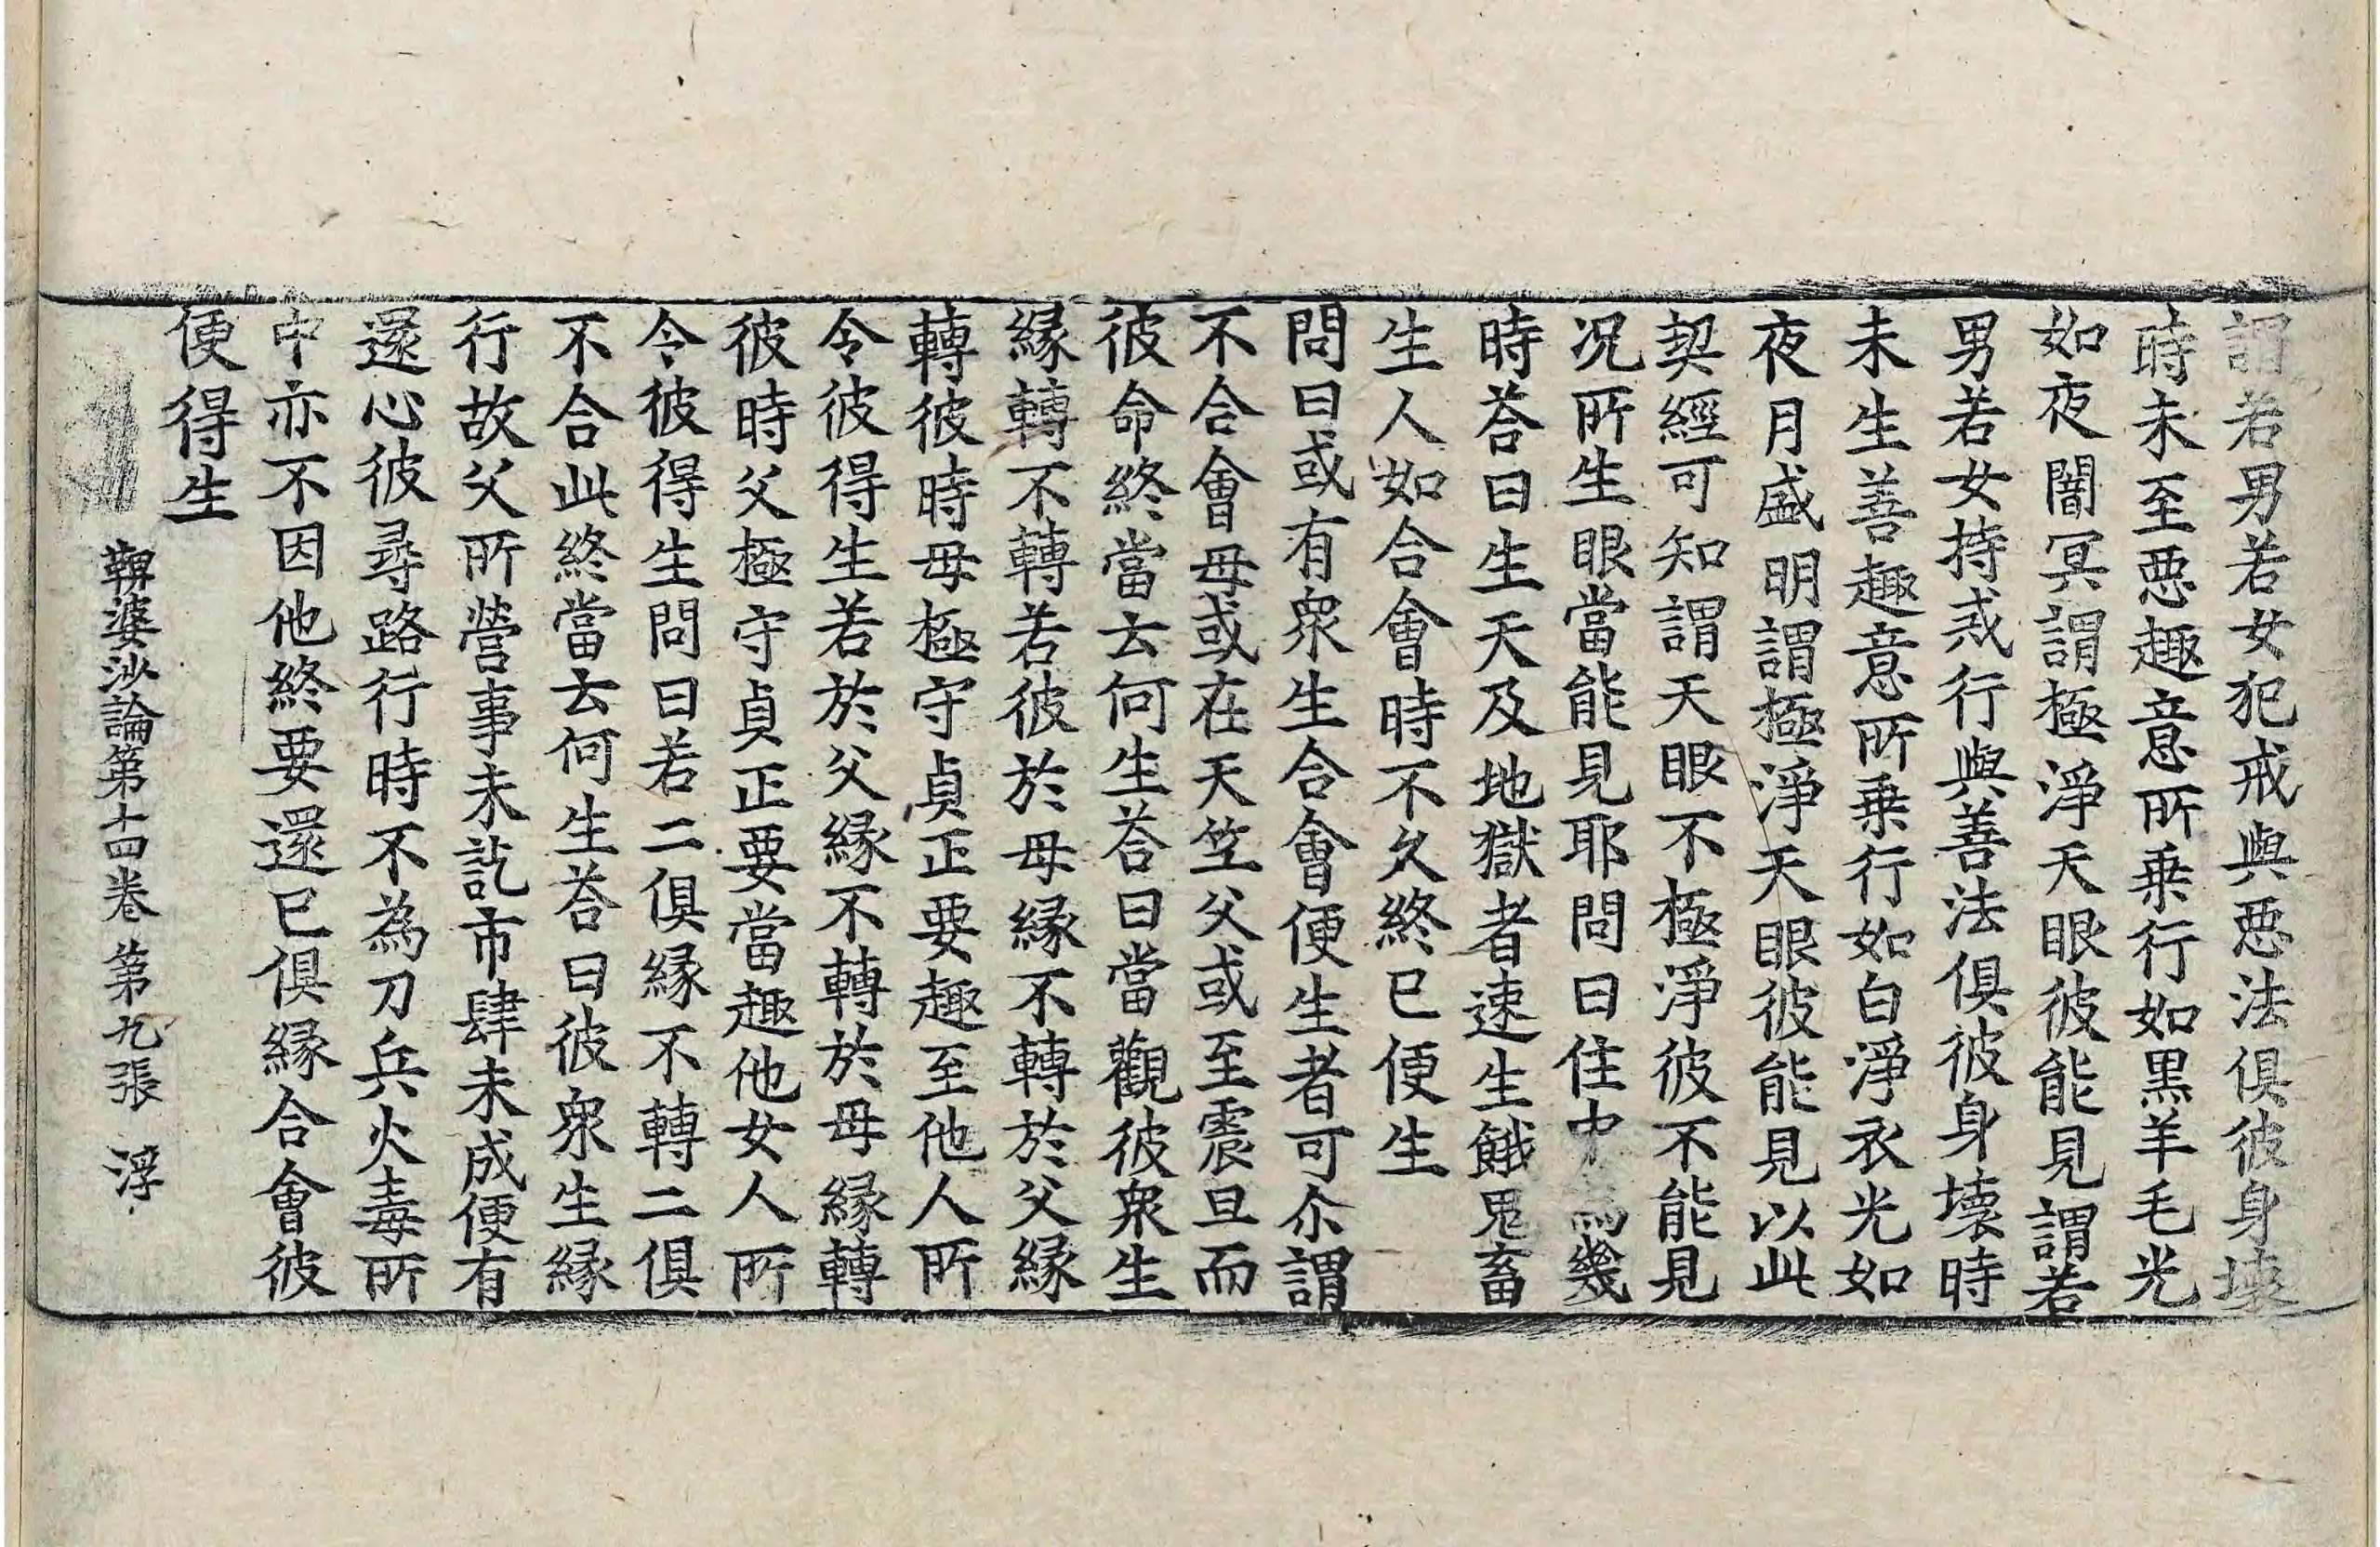 謂若男若女犯戒與惡法俱彼身壞
時未至惡趣意所乗行如黒羊毛光
如夜闇冥謂極淨天眼彼能見謂若
男若女持戒行與善法俱彼身壞時
未生善趣意所乗行如白淨衣光如
夜月盛明謂極淨天眼彼能見以此
契經可知謂天眼不極淨彼不能見
况所生眼當能見耶問曰住中為幾
時荅曰生天及地獄者速生餓鬼畜
生人如合會時不久終已便生
問曰或有衆生合會便生者可尒謂
不合會母或在天竺父或至震旦而
彼命終當云何生荅曰當觀彼衆生
縁轉不轉若彼於母縁不轉於父縁
轉彼時母極守貞正要趣至他人所
令彼得生若於父縁不轉於母縁轉
彼時父極守貞正要當趣他女人所
令彼得生問曰若二俱縁不轉二俱
不合此終當云何生荅曰彼衆生縁
行故父所營事未訖市肆未成便有
還心彼尋路行時不為刀兵火毒所
中亦不因他終要還已俱縁合會彼
便得生
鞞婆沙論第十四卷 第九張 淳